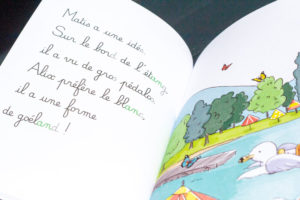 Matis a une idée.
Sur le bord de l'étang,
il a vu de gros pédalos.
Alix préfère le blanc,
il a une forme
de goéland !